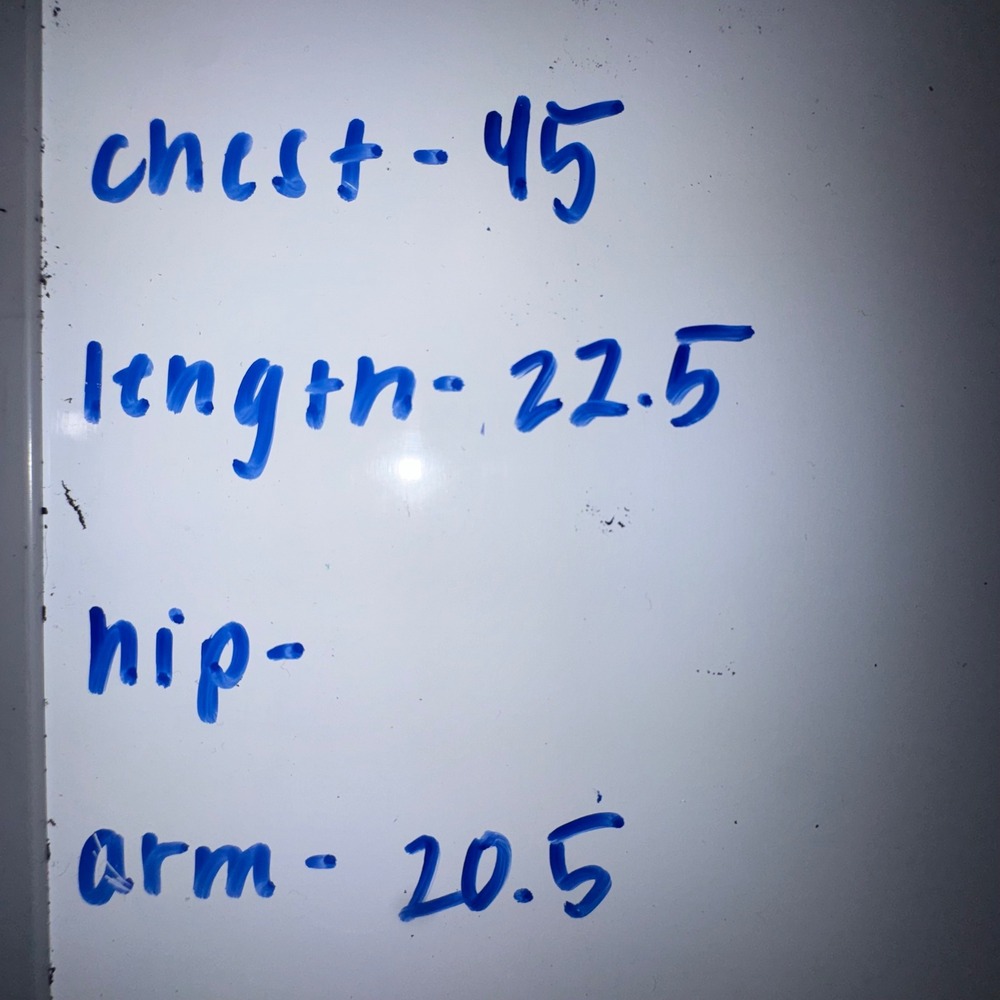 chest - 45
length - 22.5
hip -
arm - 20.5